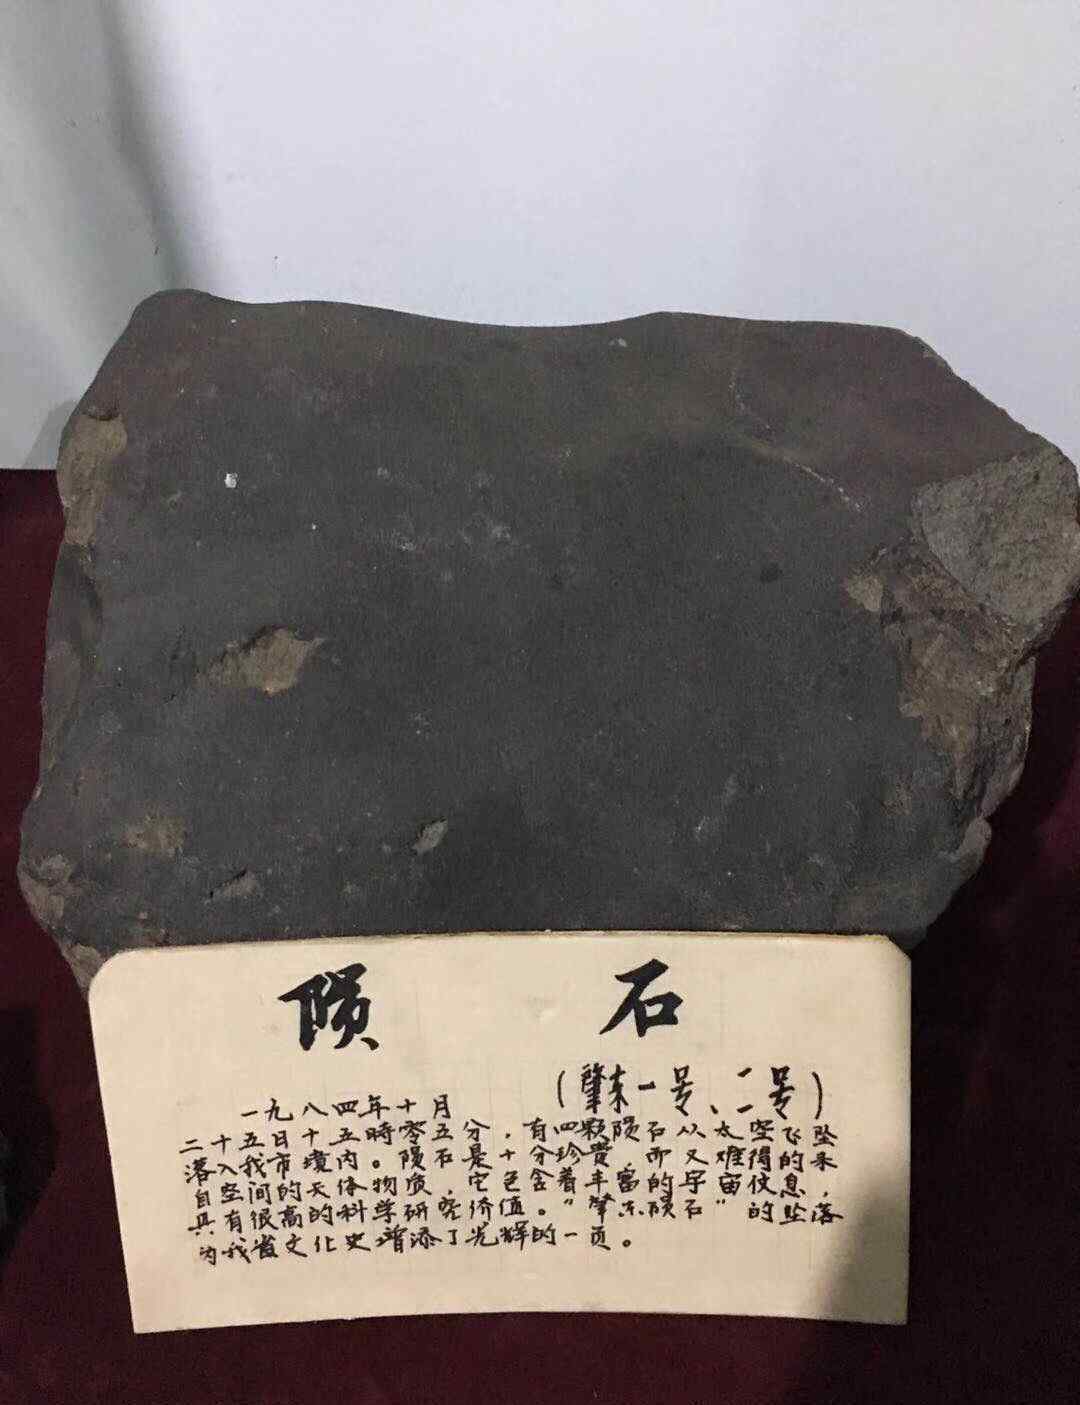 陨石
(肇东一号、二号)
一九八四年十月
二十五日十五時零五分，有四颗陨石从太空飞坠
落入我市境内。陨石是十分珍贵而又难得的来
自空间的天体物质，它包含着丰富的宇宙信息，
具有很高的科学研究价值。“肇东陨石”的坠落
为我省文化史增添了光辉的一页。